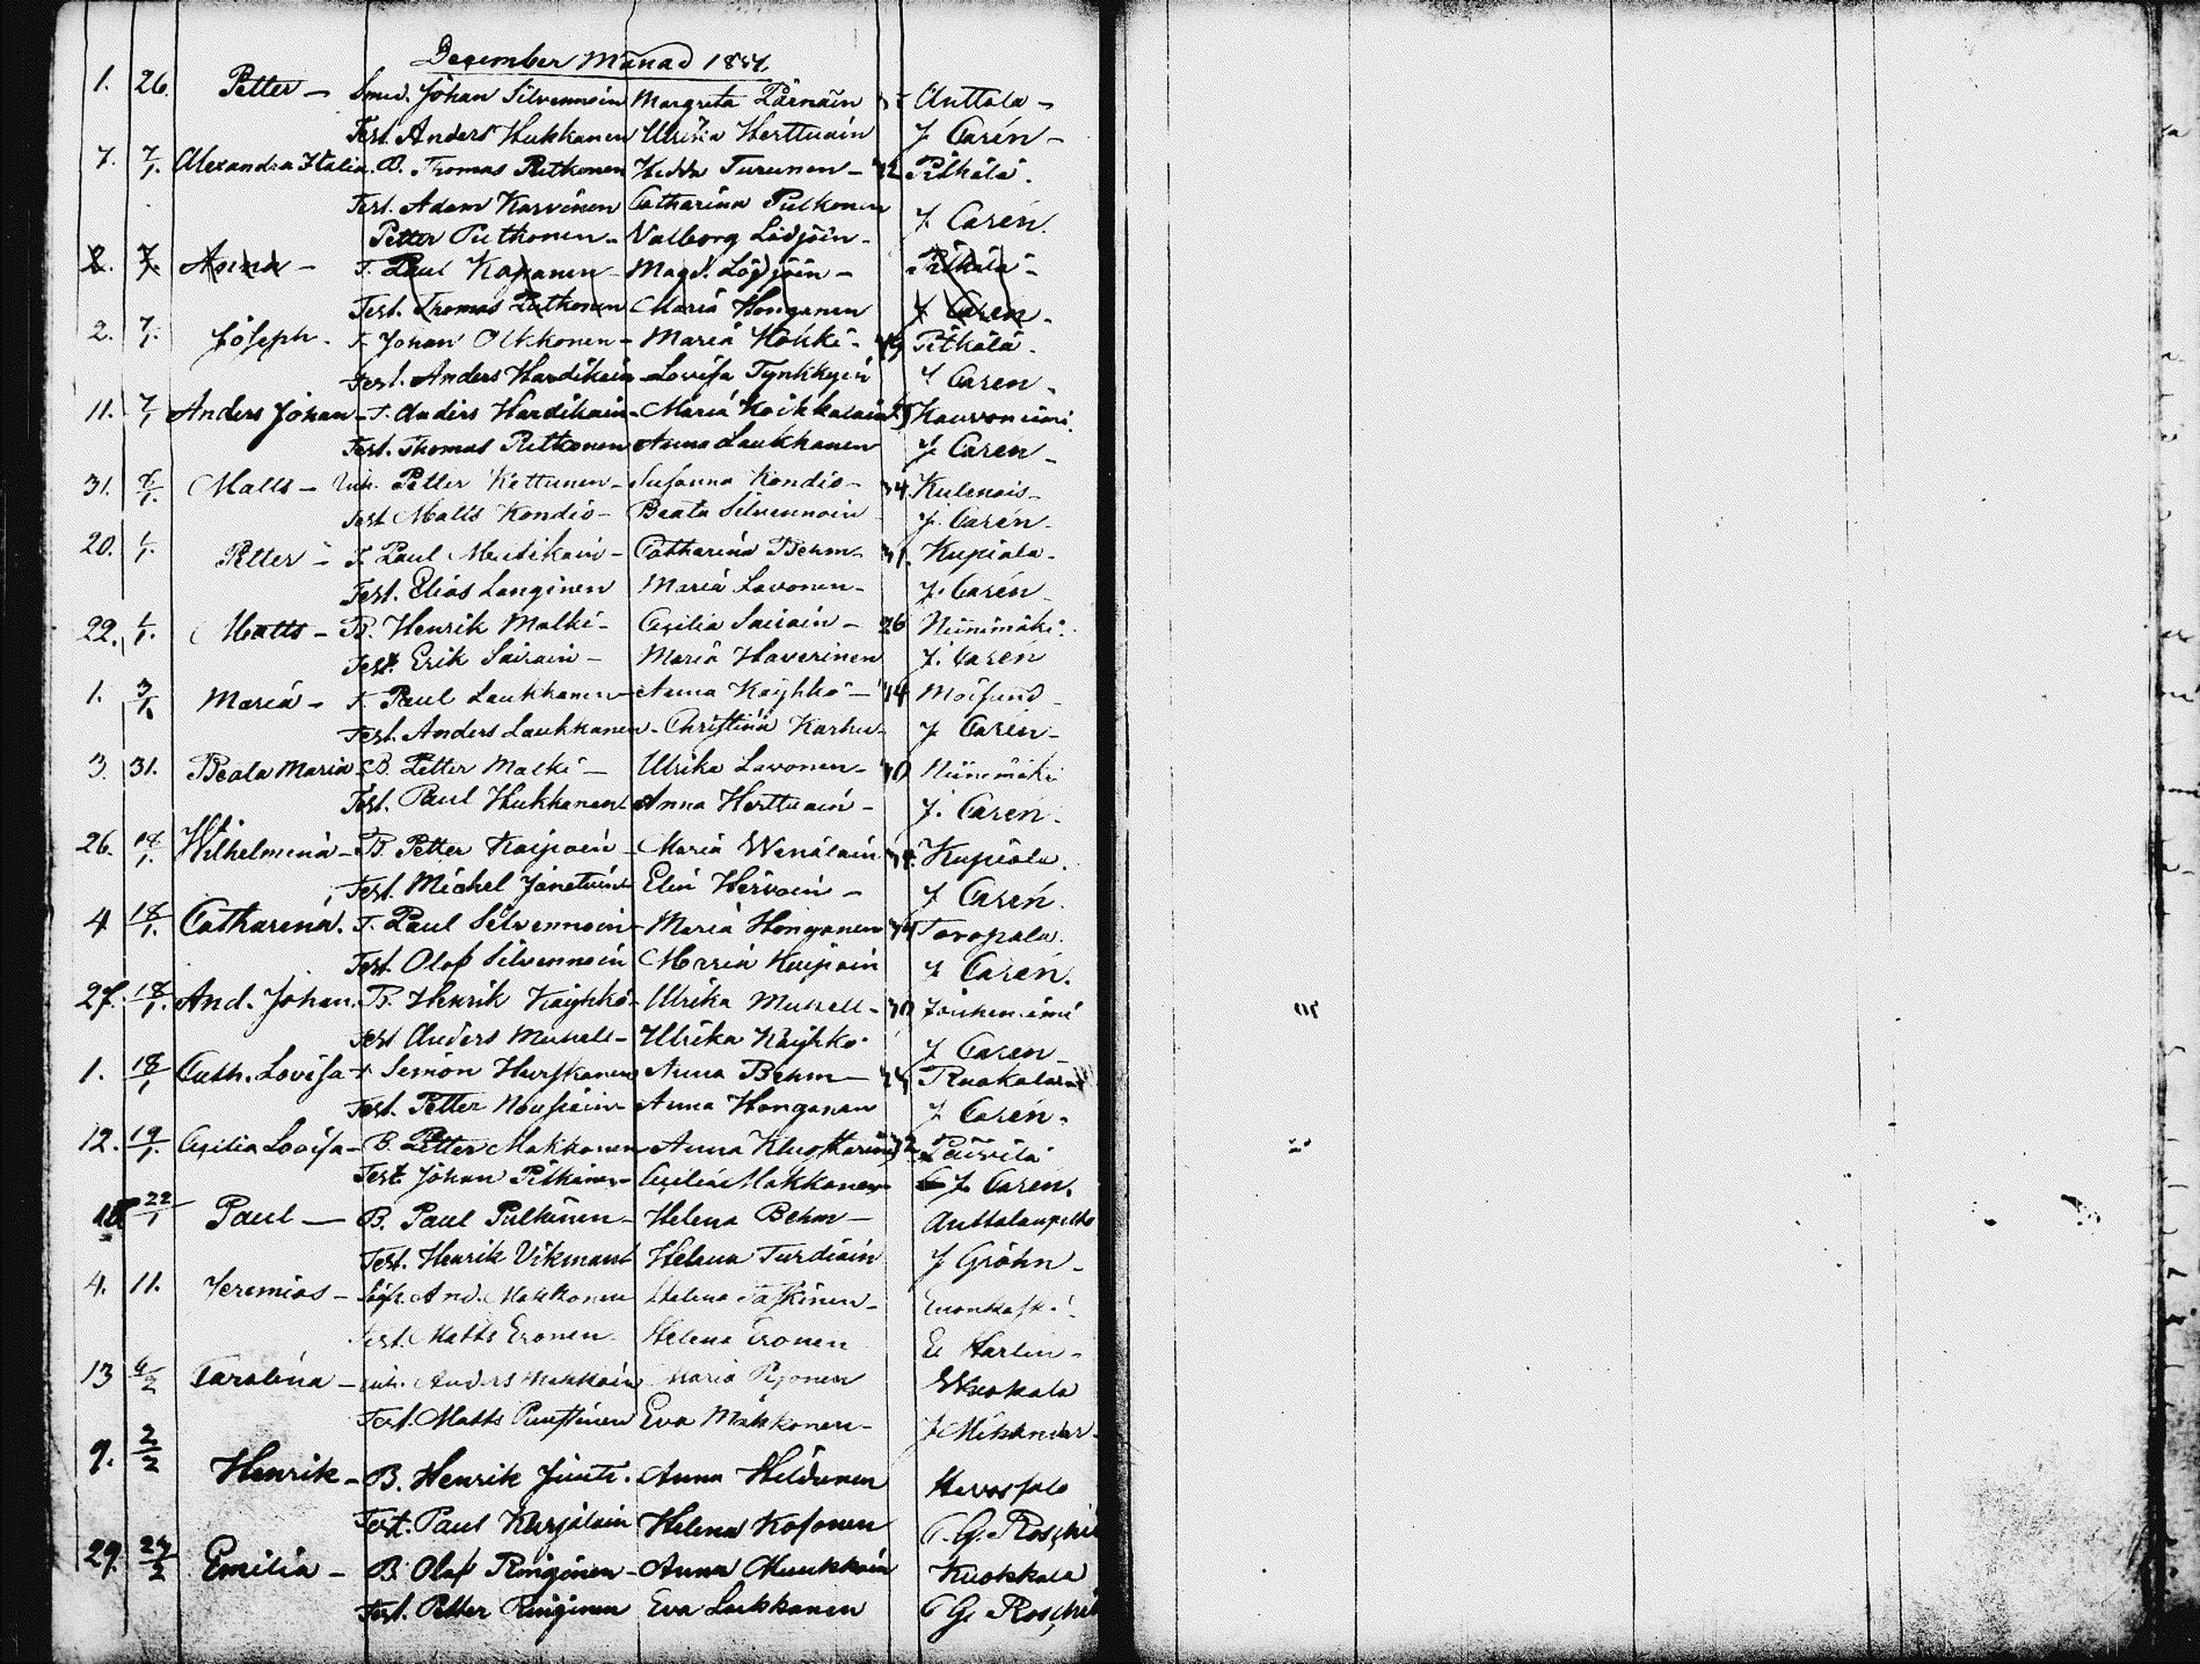 December Månad 1854.
1. 26. Petter – Smed. Johan Silvennoin Margreta Pärnäin Anttola –
Test. Anders Hukkanen Ulrika Herttuain J Carén –
7. 7/1. Alexandra Italia. B. Thomas Putkonen Hedda Turunen – 42 Pitkälä.
Test. Adam Karvinen Catharina Pulkonen J Carén.
Petter Putkonen – Valborg Lödjöin –
8. 7. Anna – T. Paul Kapanen – Magd. Lödjöin – Pitkälä –
Test. Thomas Putkonen Maria Honganen J Carén –
2. 7/1. Joseph – T. Johan Olkkonen – Maria Kokki – 49 Pitkälä –
Test. Anders Hardikain – Lovisa Tynkkyin J Caren –
11. 7/1 Anders Johan – T. Anders Hardikain – Maria Koikkalain Kauvoniemi.
Test. Thomas Putkonen Anna Laukkanen J Caren –
31. 8/1. Matts – Inh. Petter Kettunen – Susanna Kondio – 34 Kulenois –
Test Matts Kondio – Beata Silvennoin J. Carén –
20. 1/1. Petter – T. Paul Mustikain – Catharina Behm – 31. Kupiala –
Test. Elias Langinen Maria Lavonen – J. Carén –
22. 1/1. Matts – B. Henrik Malki – Cecilia Sairain – 26 Niinimäki.
Test. Erik Sairain – Maria Haverinen J. Caren
1. 3/1. Maria – T. Paul Laukkanen – Anna Käyhkö – 44 Moisund –
Test. Anders Laukkanen – Christina Karhu – J Carén –
3. 31. Beata Maria – B. Petter Malki – Ulrika Lavonen – 40 Niinimäki
Test. Paul Hukkanen Anna Herttuain – J. Caren.
26. 18/1. Wilhelmina – B. Petter Kaipain – Maria Wenäläin 34. Kupiala.
Test. Michel Janetuin Elin Hirvoin – J Carén.
4 18/1. Catharina. T. Paul Silvennoin – Maria Honganen 34 Toropala.
Test. Olof Silvennoin Maria Kaipain J Carén.
27. 18/1. And. Johan. B. Henrik Käyhkö – Ulrika Mussell – 30 Jouhenniemi
Test Anders Mussell – Ulrika Käyhkö J Caren –
1. 18/1 Cath. Lovisa – T. Simon Hurskanen Anna Behm – Ruokolax
Test. Petter Nousiain – Anna Honganen J Carén –
12. 19/1. Cecilia Lovisa – B. Petter Makkonen Anna Kluuskarin 32 Päivilä
Test. Johan Pitkänen – Cecilia Makkonen J. Caren.
22/1 Paul – B. Paul Pulkinen – Helena Behm – Anttolanpelto
Test. Henrik Vikman Helena Turdiain J Gröhn –
4. 11. Jeremias – And. Makkonen Helena Taskinen – Enonkoski –
Test. Matts Eronen – Helena Eronen E Harlin –
13 4/2 Carolina – Inh. Anders Makkoin Maria Pesonen Wuokala
Test. Matts Puustinen Eva Makkonen – J Mikander –
9. 2/2 Henrik – B. Henrik Juuti. Anna Hildunen Hevossalo
Test. Paul Karjalain Helena Kosonen C. G. Roschi
29. 24/2 Emilia – B. Olof Ringinen – Anna Muukkoin Kuokkala
Test. Petter Ringinen Eva Lackkanen C G. Roschi